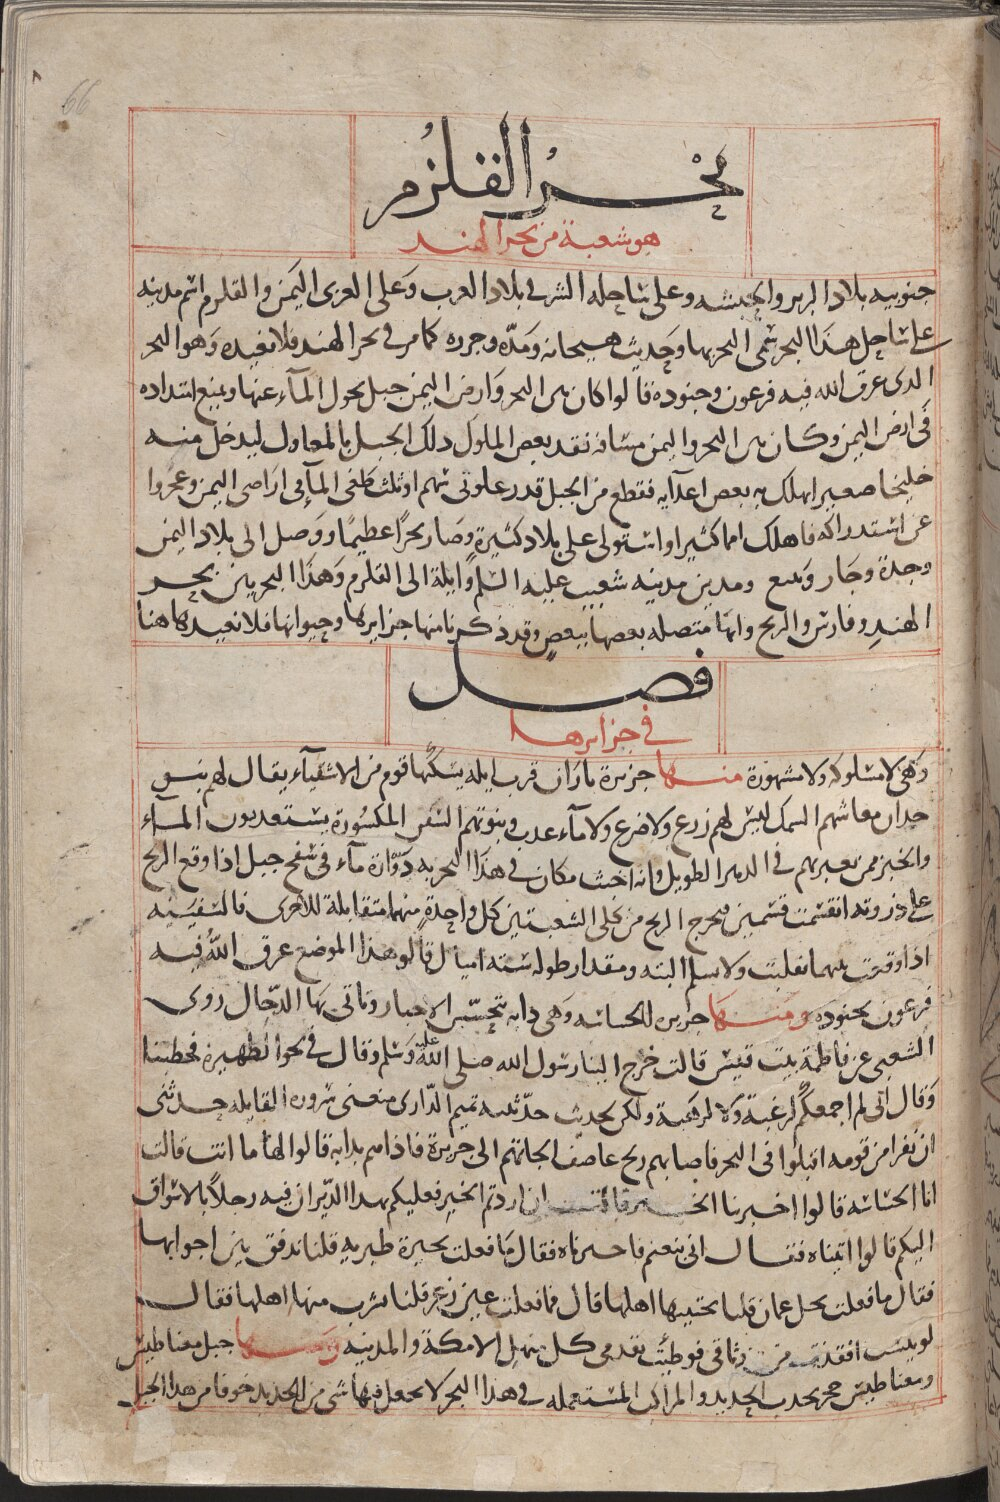 66
بحر القلزم
هو شعبة من بحر الهند
جنوبيه بلاد البربر والحبشه وعلى ساحله الشرقى بلاد العرب وعلى العربى اليمن والقلزم اسم مدينه
على ساحل هذا البحر سمى البحر بها وحديث هيجانه ومده وجزره كما مر فى بحر الهند فلا نعيده وهو البحر
الدى عرق الله فيه فرعون وجنوده قالوا كان بين البحر وارض اليمن جبل يحول المآء عنها ويمنع امتداده
فى ارض اليمن وكان بين البحر واليمن مسافه فقد بعص الملوك دلك الجبل بالمعاول ليدخل منه
خليجا صعيرا يهلك به بعص اعدآيه فقطع من الجبل قدر علوتى سهم او ثلث فطغى المآ فى اراضى اليمن وعجزوا
عن استدراكه فاهلك امما كثيرا واستولى على بلاد كثيرة وصار بحرا عطيما ووصل الى بلاد اليمن
وجدة وجار وينبع ومدين مدينه شعيب عليه السلم وايلة الى القلزم وهذا البحر بين بحر
الهند وفارس والزنج وانها متصله بعصها ببعض وقد ذكرنا منها جزايرها وحيوانها فلا نعيدها هنا
فصل
فى جزايرها
وهى لا مسلوكه ولا مشهورة منها جزيرة تاران قرب ايله يسكنها قوم من الاشقيآء يقال لهم بنو
جدان معاشهم السمك ليس لهم زرع ولا ضرع ولا مآء عدب وبيوتهم السفن المكسورة يستعدبون المآء
والخبز ممن يعبر بهم فى الدهر الطويل وانه اخبث مكان فى هذا البحر به دوارة مآء فى سفح جبل اذا وقع الريح
على ذروته انقسمت قسمين فيحرج الريح من كلى الشعبتين كل واحدة منهما متقابلة للاخرى فالسفينه
اذا وقعت بينهما تقلبت ولا سلم البته ومقدار طوله سته اميال قالوا هذا الموضع عرق الله فيه
فرعون بجنوده ومنها جزيره الجساسه وهى دابه تتجسس الاخبار وتاتى بها الدجال روى
الشعبى عن فاطمة بنت قيس قالت خرج الينا رسول الله صلى الله عليه وسلم وقال فى نحو الظهيرة فخطبنا
وقال انى لم اجمعكم لرغبة ولا لرهبة ولكن لحديث حدثنيه تميم الدارى منعنى سروره القايله حدثنى
ان نفرا من قومه اقبلوا فى البحر فاصابهم ريح عاصف الجاتهم الى جزيرة فاذا هم بدابه قالوا لها ما انت قالت
انا الجساسه قالوا اخبرينا الخبر قالت ان اردتم الخبر فعليكم بهدا الدير ان فيه رجلا بالاشواق
اليكم قالوا اتيناه فقال انى بنعتم فاخبرناه فقال ما فعلت بحيرة طبريه قلنا تدفق بين اجوابها
فقال ما فعلت نحل عمان قلنا يجتنيها اهلها قال فما فعلت عين زغر قلنا يشرب منها اهلها فقال
لو يبست انفذت من وثاقى فوطيت بقدمى كل منهل الا مكة والمدينه ومنها جبل مغناطيس
ومعناطيس حجر يجدب الحديد والمراكب المستعمله فى هذا البحر لا يجعل فيها شى من الحديد خوفا من هدا الجبل